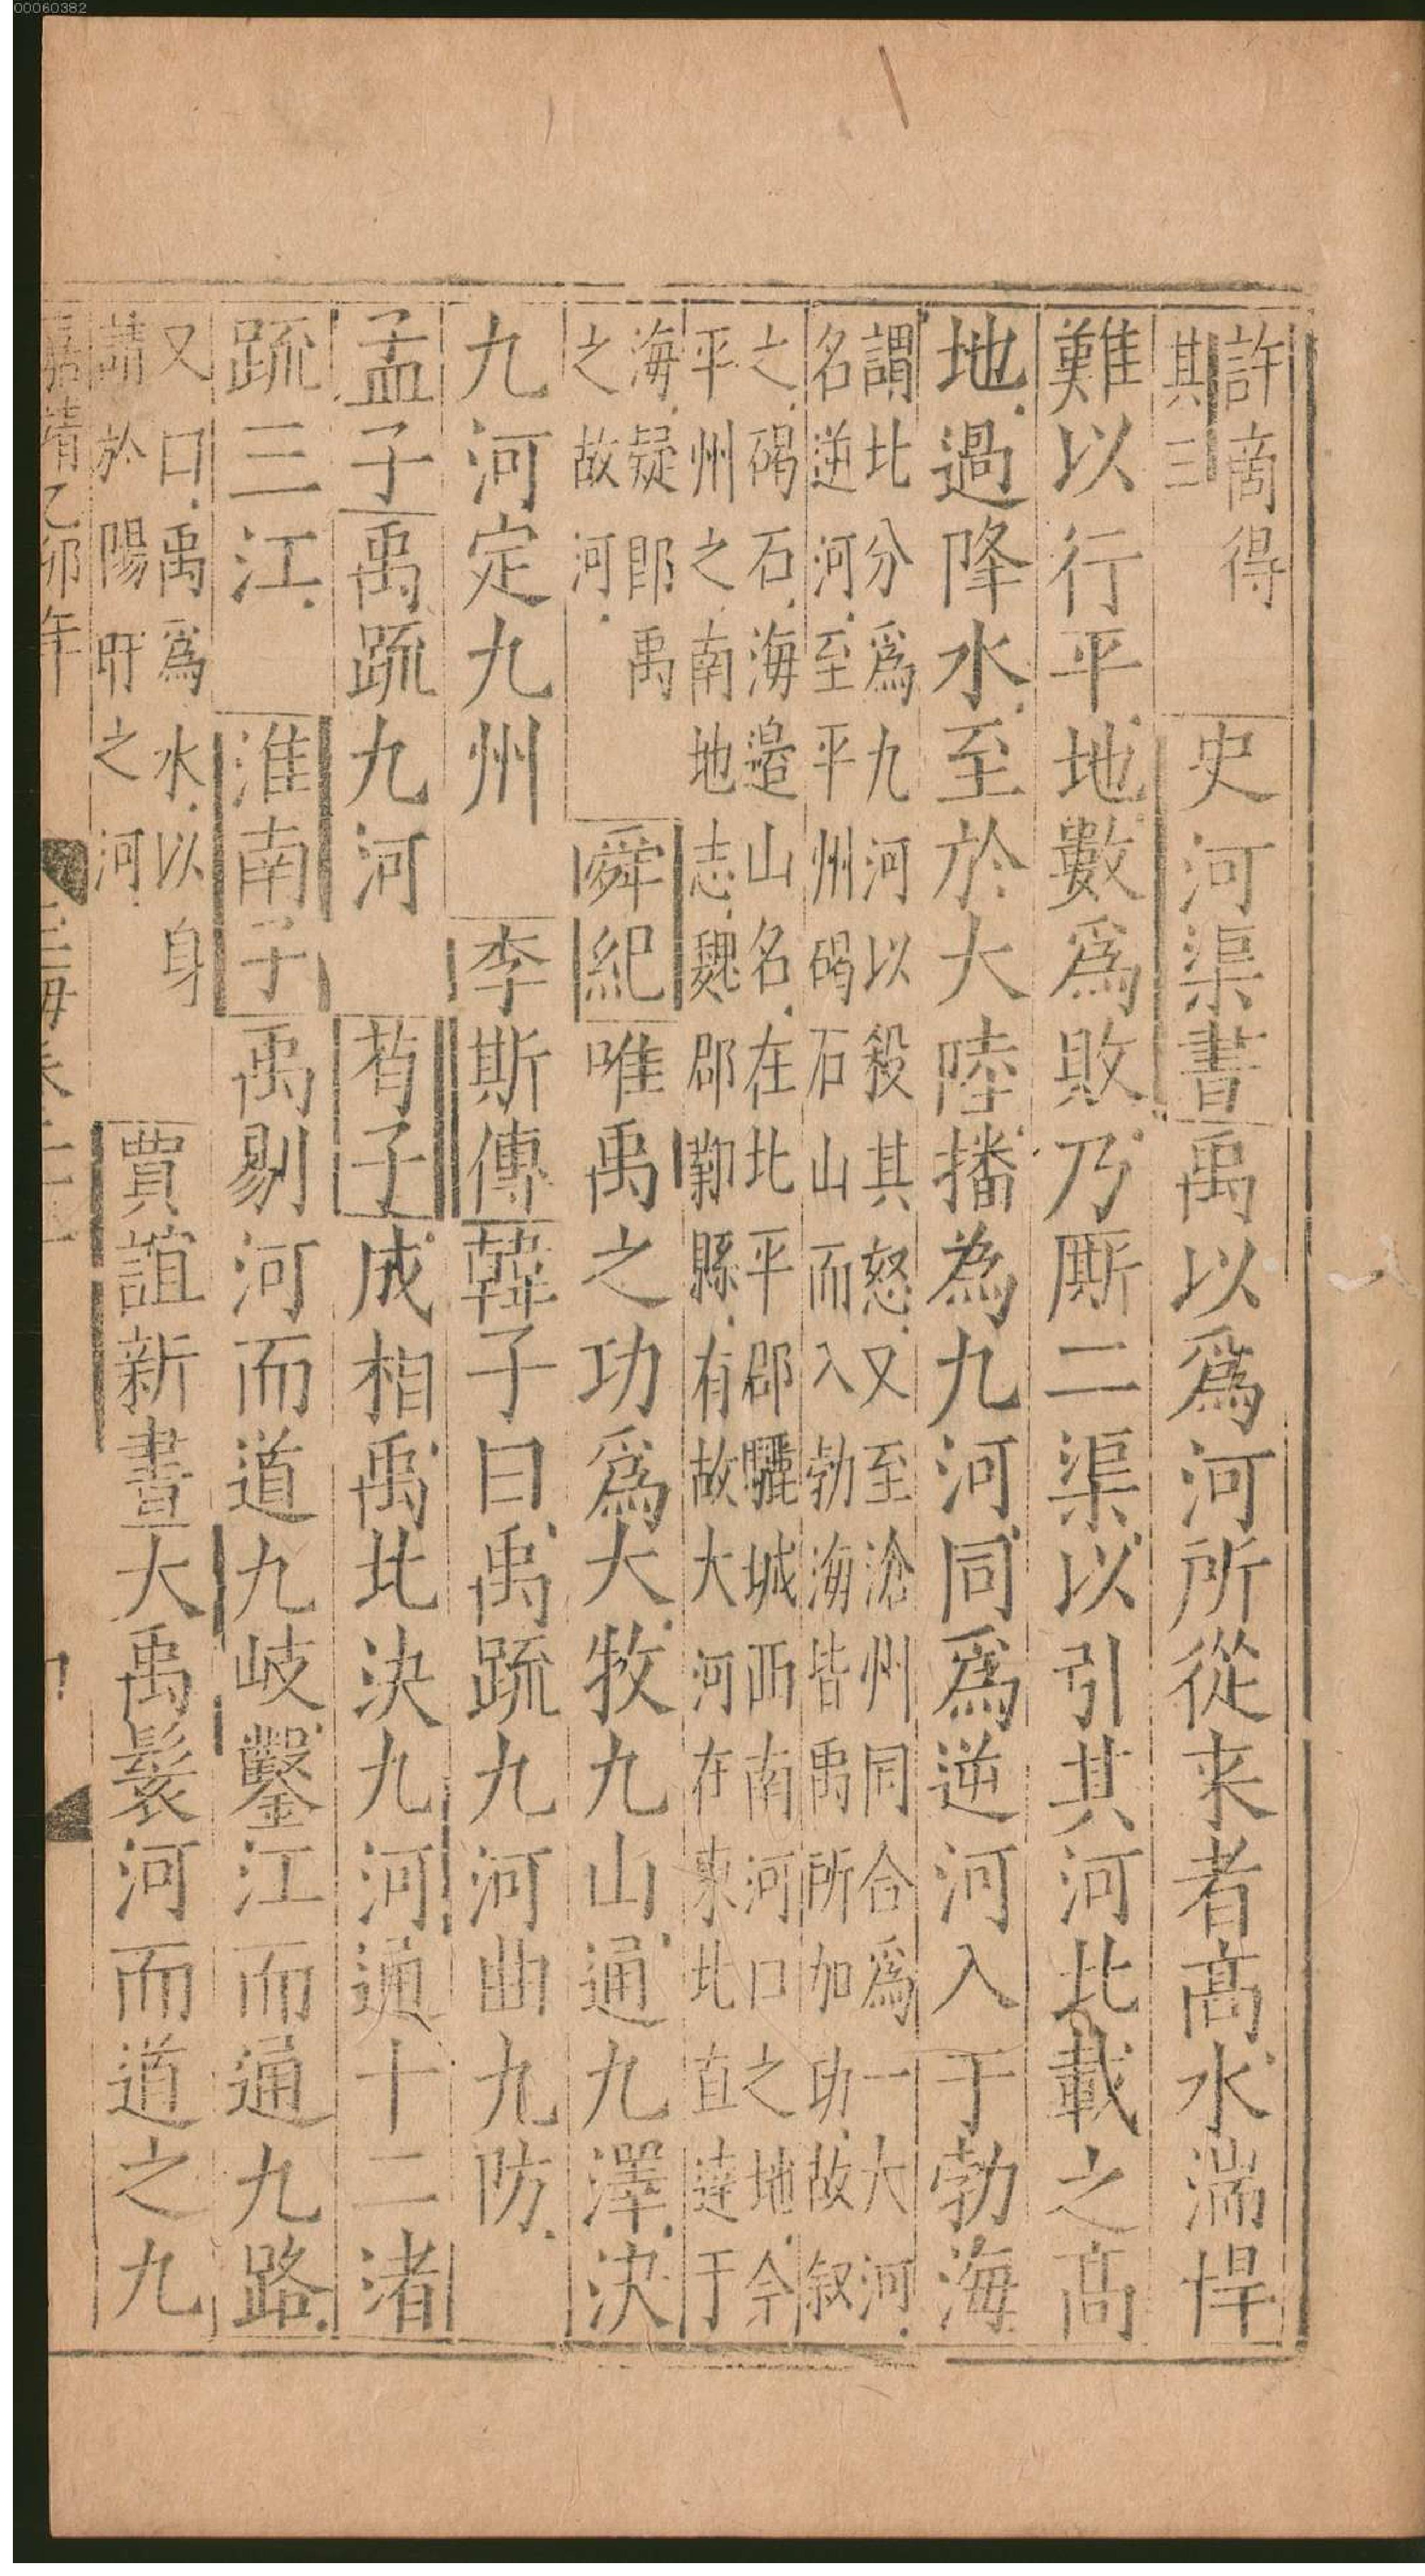 00060382
許商得
其三
史河渠書禹以爲河所從来者髙水湍悍
難以行平地數爲敗乃厮二渠以引其河北載之髙
地過降水至於大陸播為九河同爲逆河入于勃海
謂北分爲九河以殺其怒又至滄州同合爲一大河
名逆河至平州碣石山而入勃海皆禹所加功故叙
之碣石海邉山名在北平郡驪城西南河口之地今
平州之南地志魏郡鄴縣有故大河在東北直達于
海疑卽禹
之故河
舜紀唯禹之功爲大牧九山通九澤决
九河定九州
李斯傳韓子曰禹䟽九河曲九防
孟子禹䟽九河
荀子成相禹北决九河通十二渚
䟽三江
淮南子禹剔河而道九岐鑿江而通九路
又曰禹爲水以身
請於陽盱之河
賈誼新書大禹鬟河而道之九
嘉靖乙卯年
玉海卷二十一